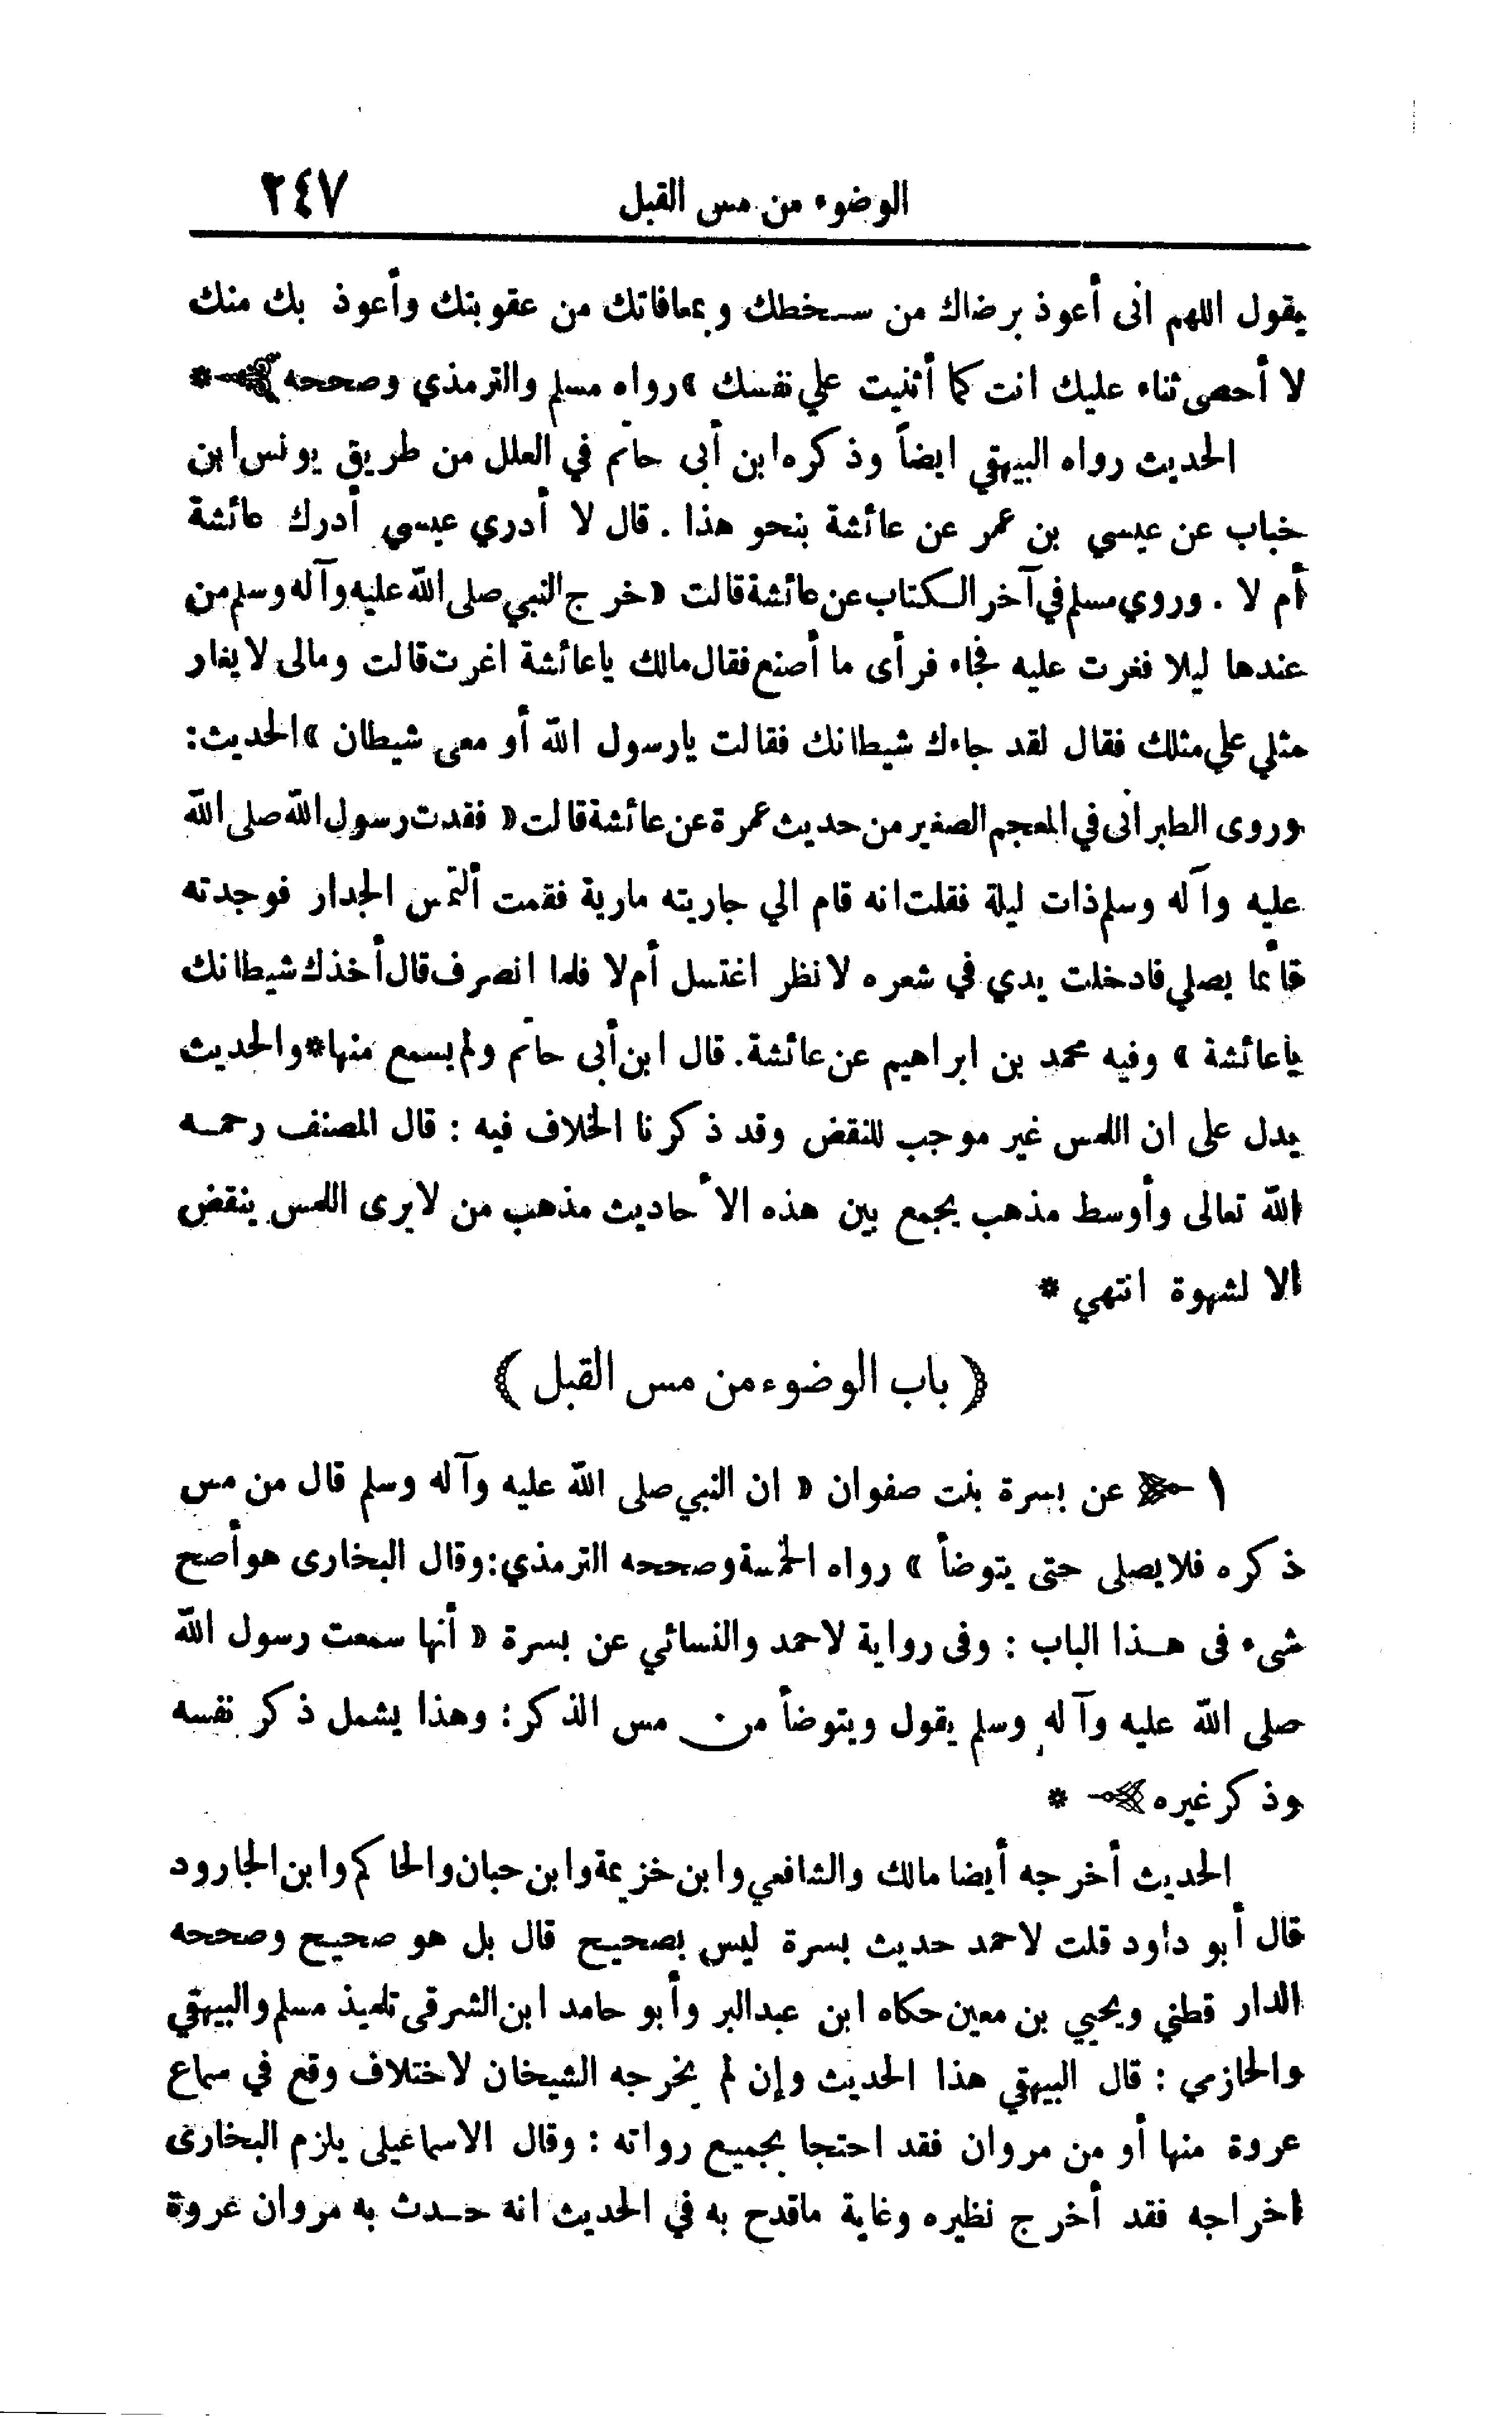 الوضوء من مس القبل ٢٤٧
يقول اللهم انى أعوذ برضاك من سخطك وبمعافاتك من عقوبتك وأعوذ بك منك
لا أحصى ثناء عليك انت كما أثنيت علي نفسك » رواه مسلم والترمذي وصححه *
الحديث رواه البيهقي ايضاً وذكره ابن أبى حاتم في العلل من طريق يونس ابن
خباب عن عيسي بن عمر عن عائشة بنحو هذا . قال لا أدري عيسي أدرك عائشة
أم لا . وروي مسلم في آخر الكتاب عن عائشة قالت « خرج النبي صلى الله عليه وآله وسلم من
عندها ليلا فغرت عليه فجاء فرأى ما أصنع فقال مالك ياعائشة اغرت قالت ومالى لا يغار
مثلي علي مثلك فقال لقد جاءك شيطانك فقالت يارسول الله أو معى شيطان » الحديث:
وروى الطبرانى في المعجم الصغير من حديث عمرة عن عائشة قالت « فقدت رسول الله صلى الله
عليه وآله وسلم ذات ليلة فقلت انه قام الي جاريته مارية فقمت ألتمس الجدار فوجدته
قائما يصلي فادخلت يدي في شعره لانظر اغتسل أم لا فلما انصرف قال أخذك شيطانك
ياعائشة » وفيه محمد بن ابراهيم عن عائشة. قال ابن أبى حاتم ولم يسمع منها * والحديث
يدل على ان اللمس غير موجب للنقض وقد ذكرنا الخلاف فيه : قال المصنف رحمه
الله تعالى وأوسط مذهب يجمع بين هذه الأحاديث مذهب من لا يرى اللمس ينقض
الا لشهوة انتهي *
﴿ باب الوضوء من مس القبل ﴾
١ عن بسرة بنت صفوان « ان النبي صلى الله عليه وآله وسلم قال من مس
ذكره فلا يصلى حتى يتوضأ » رواه الخمسة وصححه الترمذي: وقال البخارى هو أصح
شىء فى هذا الباب : وفى رواية لاحمد والنسائي عن بسرة « أنها سمعت رسول الله
صلى الله عليه وآله وسلم يقول ويتوضأ من مس الذكر: وهذا يشمل ذكر نفسه
وذكر غيره *
الحديث أخرجه أيضا مالك والشافعي وابن خزيمة وابن حبان والحاكم وابن الجارود
قال أبو داود قلت لاحمد حديث بسرة ليس بصحيح قال بل هو صحيح وصححه
الدار قطني ويحيي بن معين حكاه ابن عبدالبر وأبو حامد ابن الشرقى تلميذ مسلم والبيهقي
والحازمي : قال البيهقي هذا الحديث وإن لم يخرجه الشيخان لاختلاف وقع في سماع
عروة منها أو من مروان فقد احتجا بجميع رواته : وقال الاسماعيلى يلزم البخارى
اخراجه فقد أخرج نظيره وغاية ماقدح به في الحديث انه حدث به مروان عروة